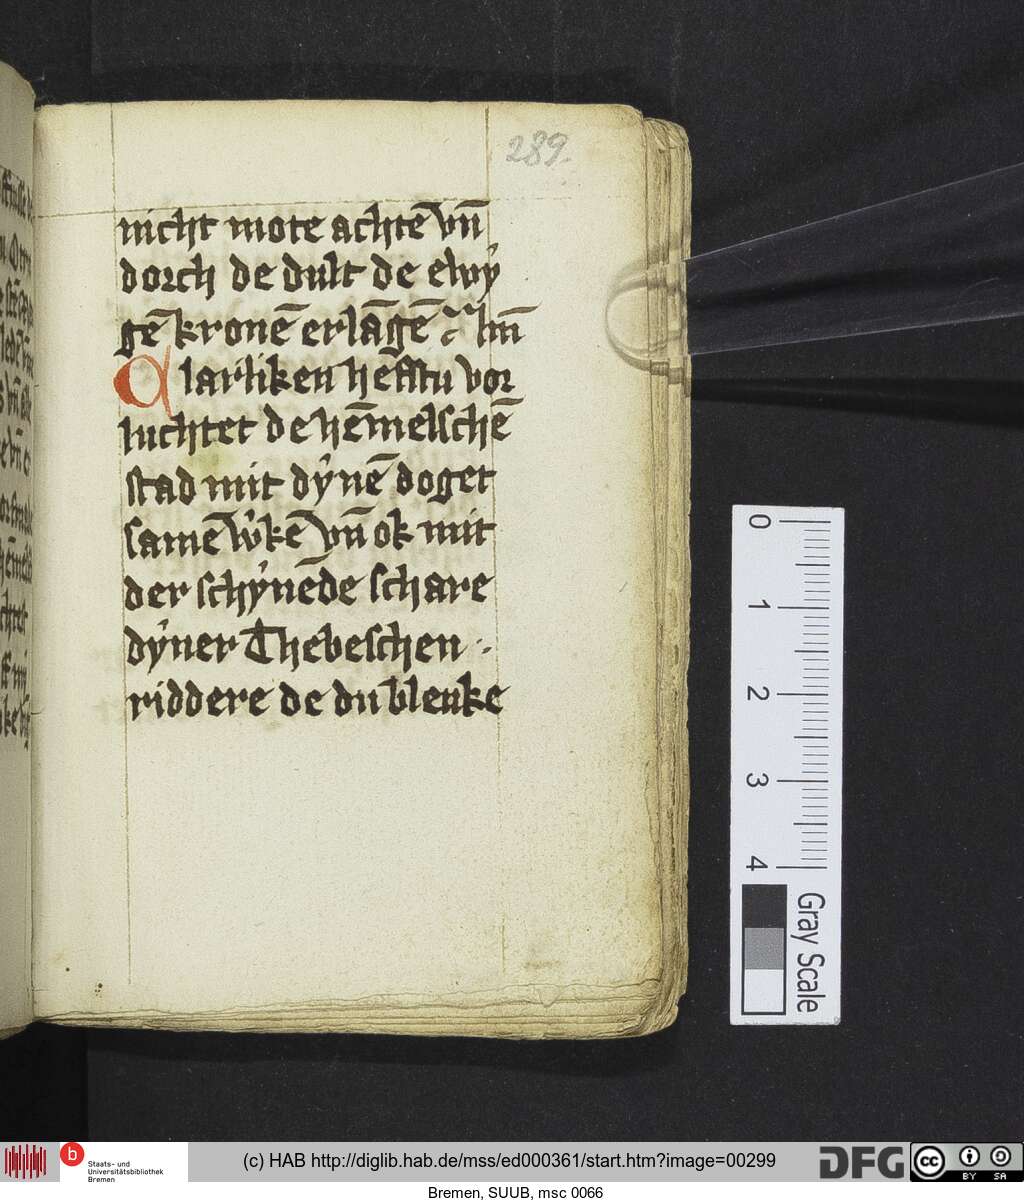 289.
nicht mote achtē vn̄
dorch de dult de ewÿ
gē kronē erlāgē
larliken hēfftu vor
luchtet de hēmelschē
stad mit dẏnē doget
samē wͥkē vn̄ ok mit
der schẏnēde schare
dẏner Thebeschen
riddere de du blenke
0
1
2
3
4
Gray Scale
b Staats- und
Universitätsbibliothek
Bremen
(c) HAB http://diglib.hab.de/mss/ed000361/start.htm?image=00299
DFG
cc
BY SA
Bremen, SUUB, msc 0066